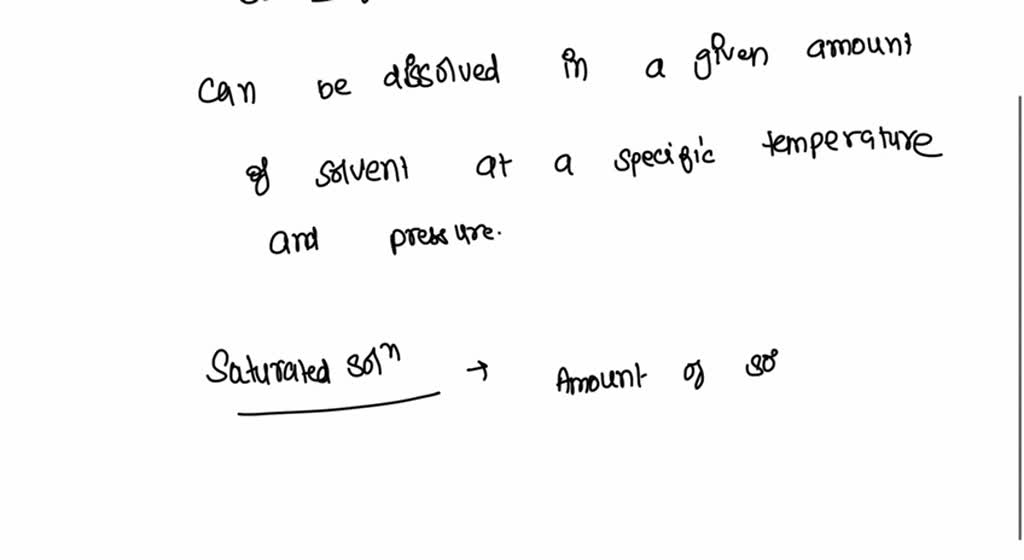 can be dissolved in a given amount
of solvent at a specific temperature
and pressure.
Saturated solⁿ → Amount of so